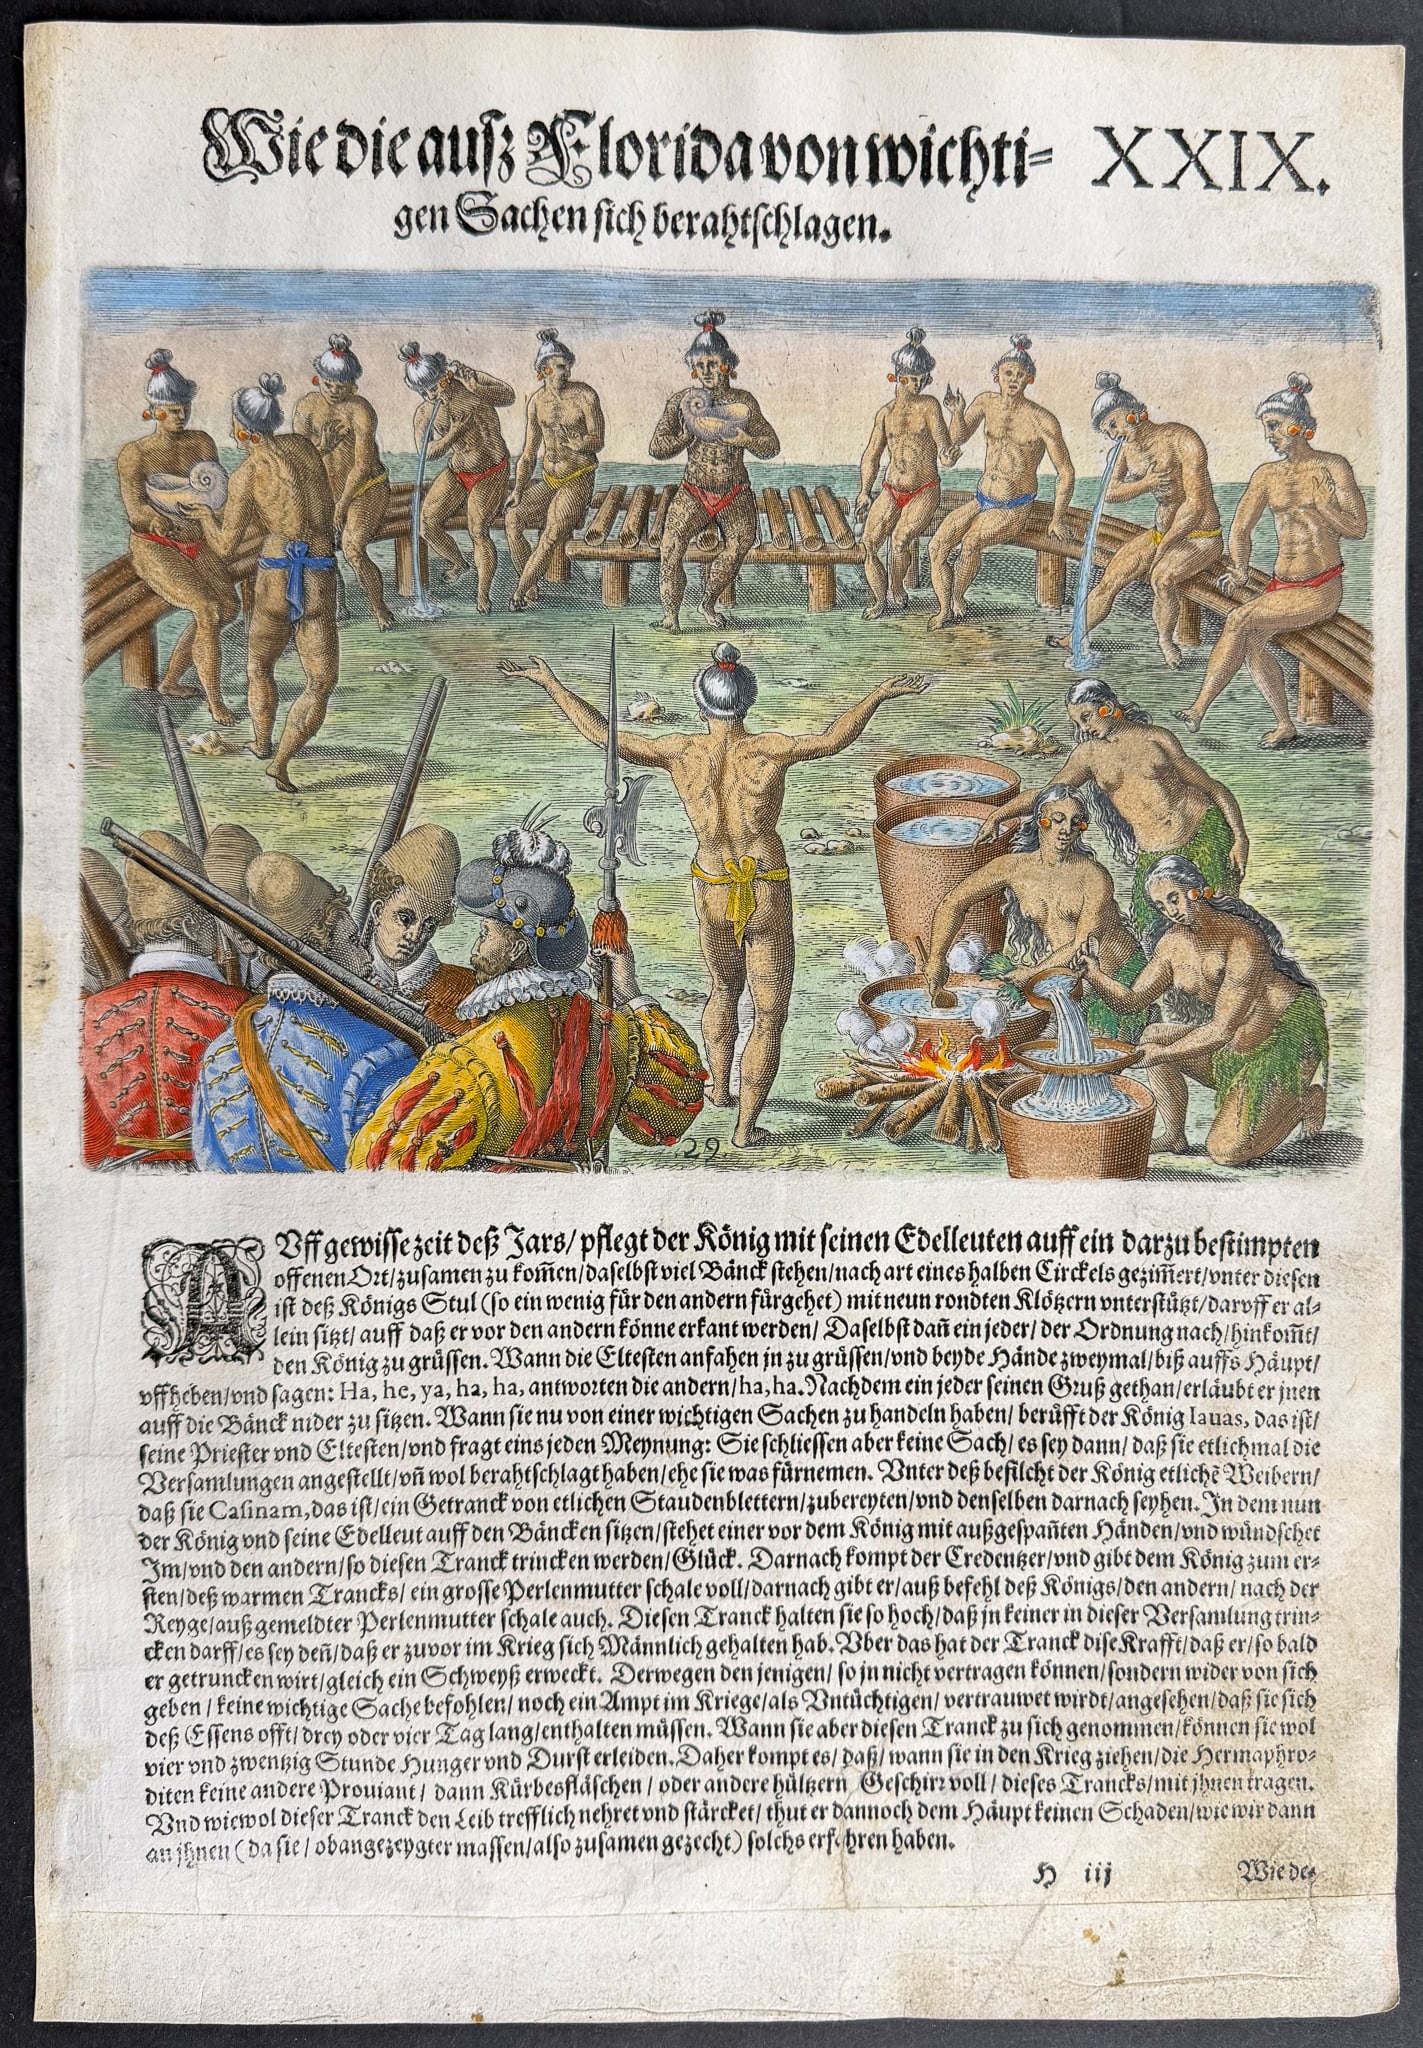 Wie die ausz Florida von wichti= XXIX.
gen Sachen sich berahtschlagen.
29.
AUff gewisse zeit deß Jars/ pflegt der König mit seinen Edelleuten auff ein darzu bestimpten
offenen Ort/ zusamen zu kom̃en/ daselbst viel Bänck stehen/ nach art eines halben Circkels gezim̃ert/ vnter diesen
ist deß Königs Stul (so ein wenig für den andern fürgehet) mit neun rondten Klötzern vnterstützt/ daruff er al=
lein sitzt/ auff daß er vor den andern könne erkant werden/ Daselbst dañ ein jeder/ der Ordnung nach/ hinkom̃t/
den König zu grüssen. Wann die Eltesten anfahen jn zu grüssen/ vnd beyde Hände zweymal/ biß auffs Häupt/
vffheben/ vnd sagen: Ha, he, ya, ha, ha, antworten die andern/ ha, ha. Nachdem ein jeder seinen Gruß gethan/ erläubt er jnen
auff die Bänck nider zu sitzen. Wann sie nu von einer wichtigen Sachen zu handeln haben/ berüfft der König Iauas, das ist/
seine Priester vnd Eltesten/ vnd fragt eins jeden Meynung: Sie schliessen aber keine Sach/ es sey dann/ daß sie etlichmal die
Versamlungen angestellt/ vñ wol berahtschlagt haben/ ehe sie was fürnemen. Vnter deß befilcht der König etlichẽ Weibern/
daß sie Casinam, das ist/ ein Getranck von etlichen Staudenblettern/ zubereyten/ vnd denselben darnach seyhen. In dem nun
der König vnd seine Edelleut auff den Bäncken sitzen/ stehet einer vor dem König mit außgespañten Händen/ vnd wündschet
Im/ vnd den andern/ so diesen Tranck trincken werden/ Glück. Darnach kompt der Credentzer/ vnd gibt dem König zum er=
sten/ deß warmen Trancks/ ein grosse Perlenmutter schale voll/ darnach gibt er/ auß befehl deß Königs/ den andern/ nach der
Reyge/ auß gemeldter Perlenmutter schale auch. Diesen Tranck halten sie so hoch/ daß jn keiner in dieser Versamlung trin=
cken darff/ es sey deñ/ daß er zuvor im Krieg sich Männlich gehalten hab. Vber das hat der Tranck dise Krafft/ daß er/ so bald
er getruncken wirt/ gleich ein Schweyß erweckt. Derwegen den jenigen/ so jn nicht vertragen können/ sondern wider von sich
geben/ keine wichtige Sache befohlen/ noch ein Ampt im Kriege/ als Vntüchtigen/ vertrauwet wirdt/ angesehen/ daß sie sich
deß Essens offt/ drey oder vier Tag lang/ enthalten müssen. Wann sie aber diesen Tranck zu sich genommen/ können sie wol
vier vnd zwentzig Stunde Hunger vnd Durst erleiden. Daher kompt es/ daß/ wann sie in den Krieg ziehen/ die Hermaphro=
diten keine andere Prouiant/ dann Kürbesfläschen/ oder andere hültzern Geschirr voll/ dieses Trancks/ mit jhnen tragen.
Vnd wiewol dieser Tranck den Leib trefflich nehret vnd stärcket/ thut er dannoch dem Häupt keinen Schaden/ wie wir dann
an jhnen (da sie/ obangezeygter massen/ also zusamen gezecht) solchs erfahren haben.
H iij Wie der